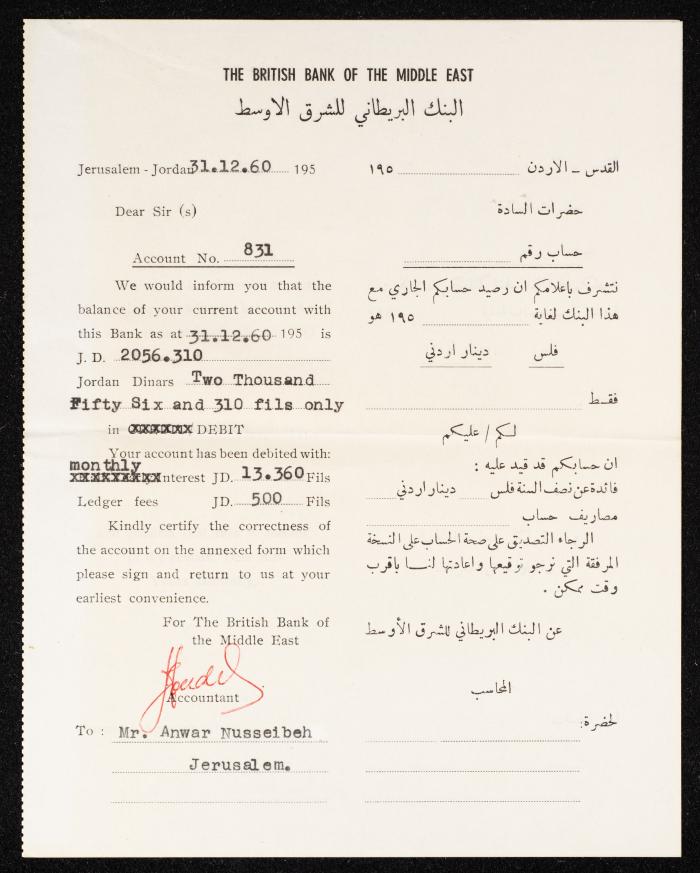 THE BRITISH BANK OF THE MIDDLE EAST
البنك البريطاني للشرق الاوسط
Jerusalem - Jordan 31.12.60 195
Dear Sir (s)
Account No. 831
We would inform you that the
balance of your current account with
this Bank as at 31.12.60 195 is
J. D. 2056.310
Jordan Dinars Two Thousand
Fifty Six and 310 fils only
in DEBIT
Your account has been debited with:
monthly
Interest JD. 13.360 Fils
Ledger fees JD. 500 Fils
Kindly certify the correctness of
the account on the annexed form which
please sign and return to us at your
earliest convenience.
For The British Bank of
the Middle East
Accountant
To : Mr. Anwar Nusseibeh
Jerusalem.
القدس – الاردن ١٩٥
حضرات السادة
حساب رقم
نتشرف باعلامكم ان رصيد حسابكم الجاري مع
هذا البنك لغاية ١٩٥ هو
فلس دينار اردني
فقط
لكم / عليكم
ان حسابكم قد قيد عليه :
فائدة عن نصف السنة فلس دينار اردني
مصاريف حساب
الرجاء التصديق على صحة الحساب على النسخة
المرفقة التي نرجو توقيعها واعادتها لنا باقرب
وقت ممكن .
عن البنك البريطاني للشرق الأوسط
المحاسب
لحضرة: